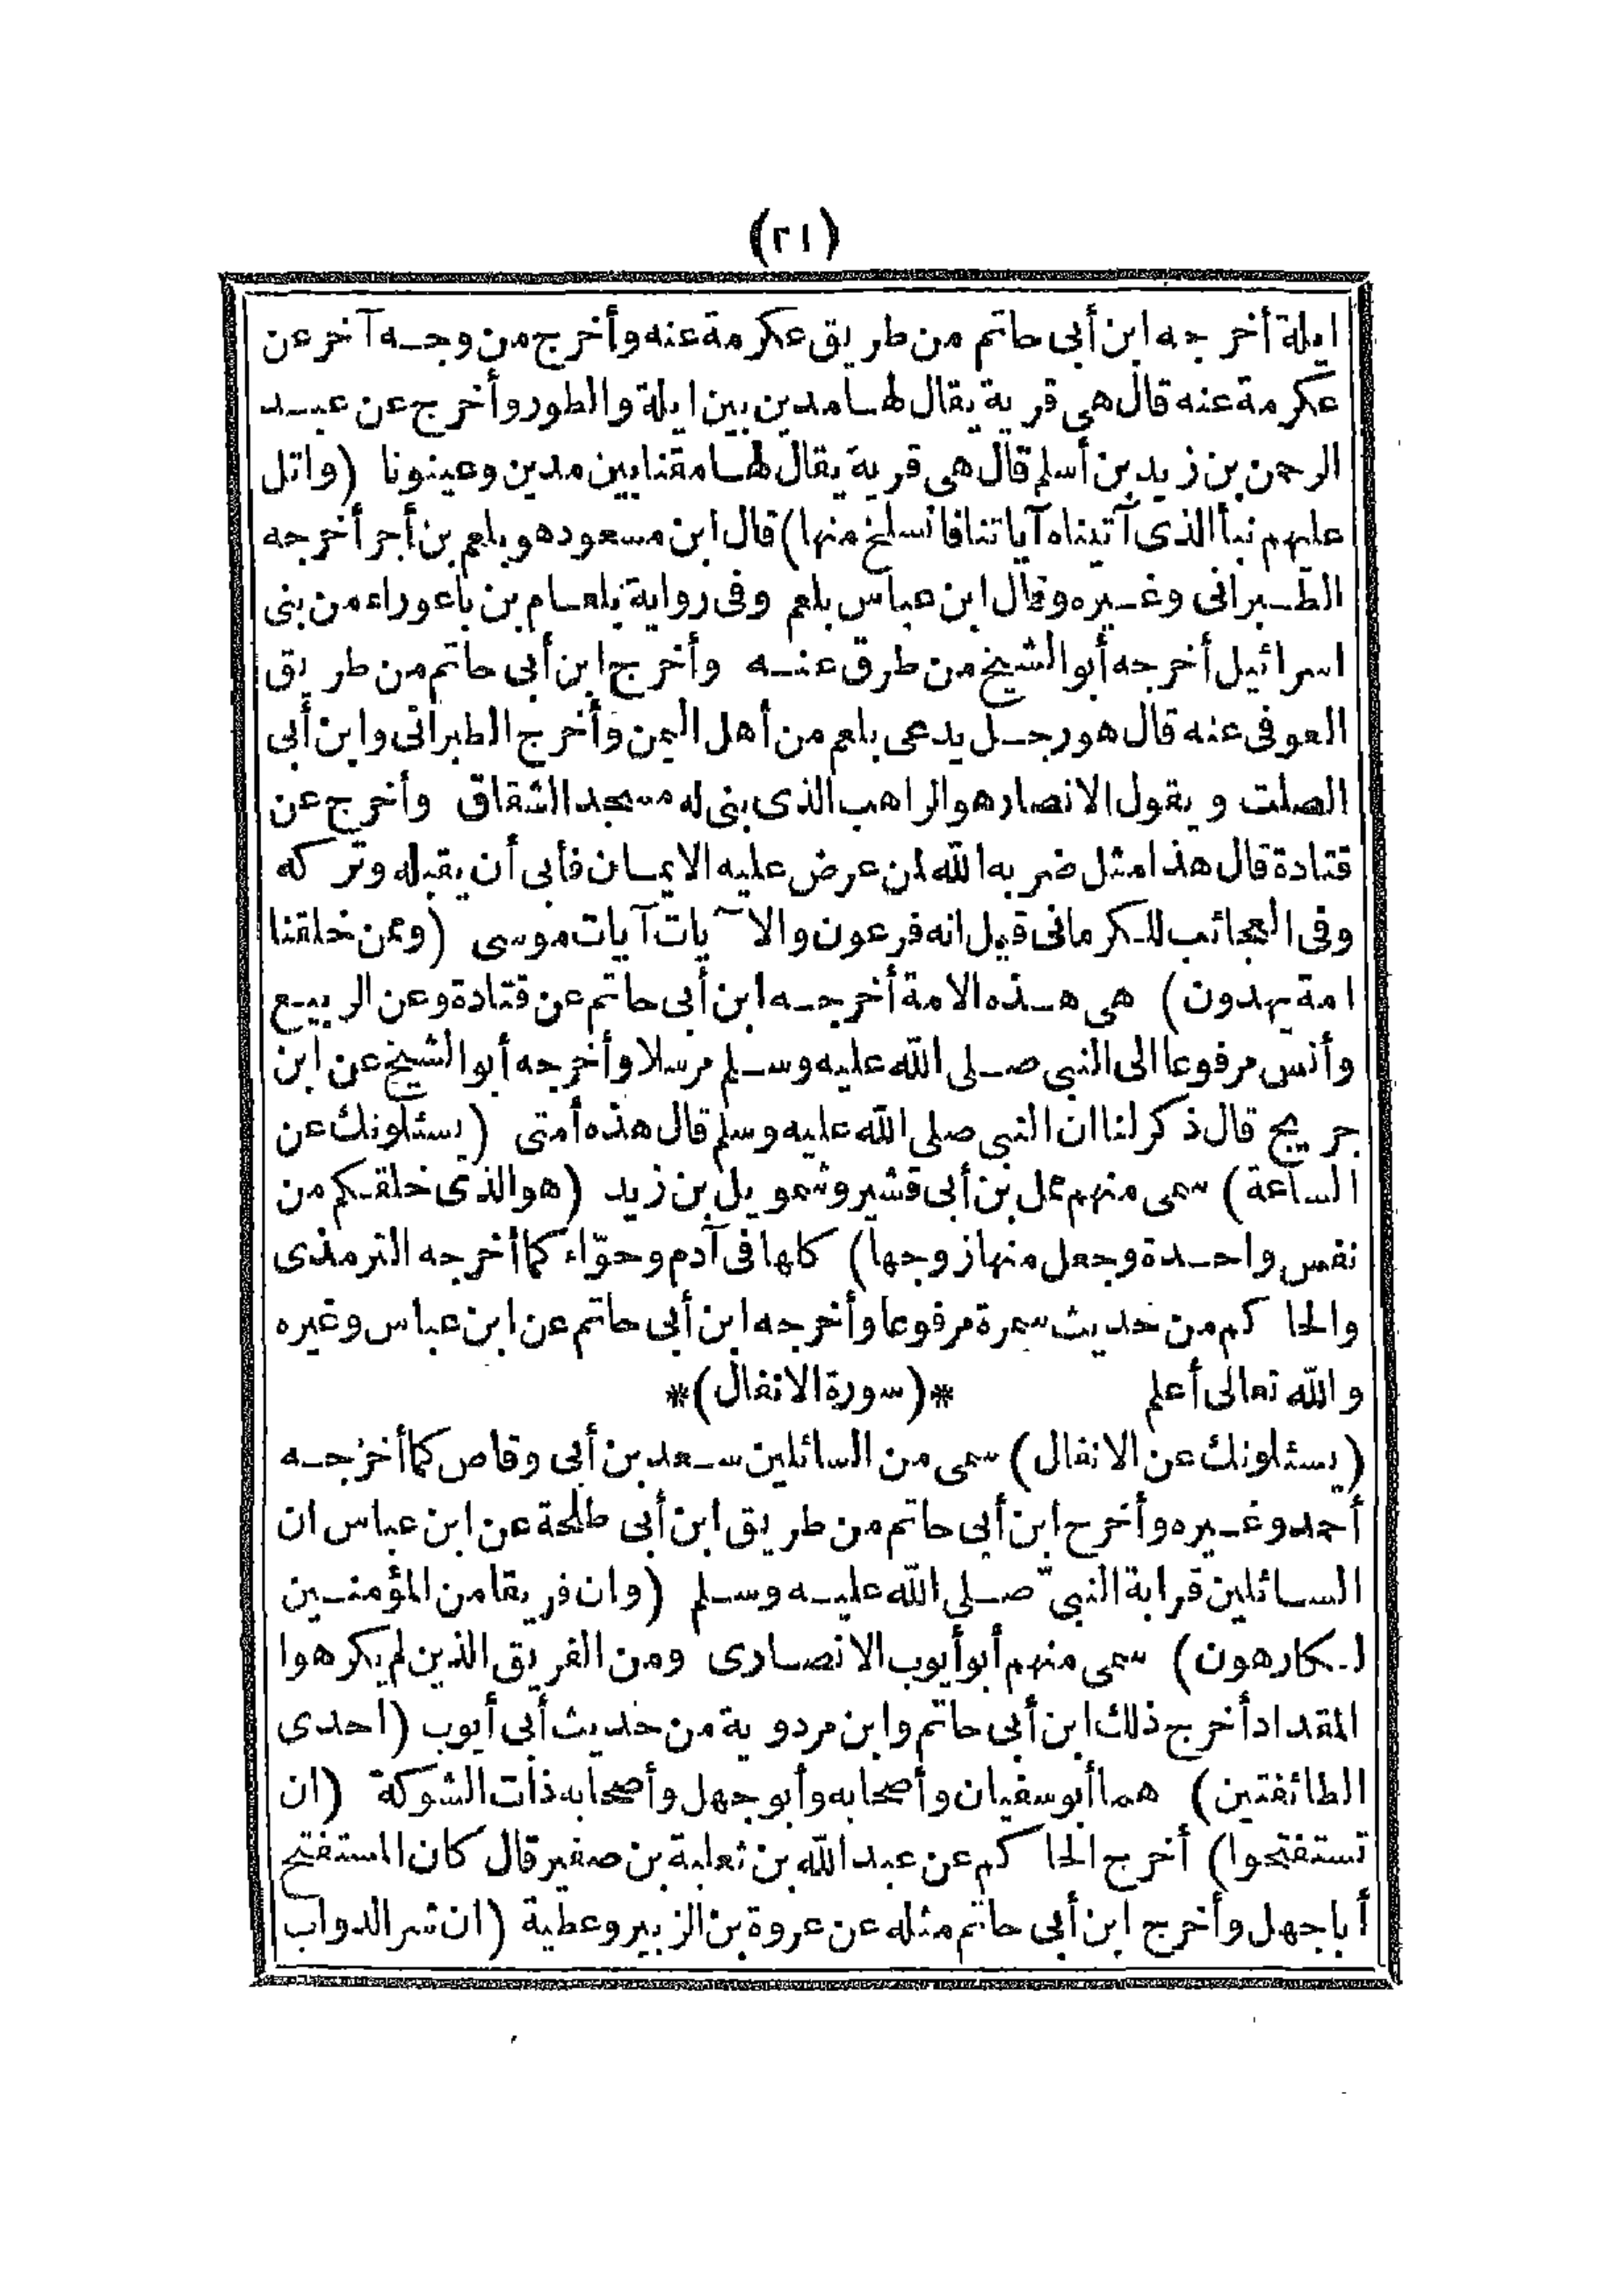 (٢١)
ايلة أخرجه ابن أبى حاتم من طريق عكرمة عنه وأخرج من وجه آخر عن
عكرمة عنه قال هى قرية يقال لها مدين بين ايلة والطور وأخرج عن عبد
الرحمن بن زيد بن أسلم قال هى قرية يقال لها مقنا بين مدين وعينونا (واتل
عليهم نبأ الذى آتيناه آياتنا فانسلخ منها) قال ابن مسعود هو بلعم بن أبجر أخرجه
الطبرانى وغيره وقال ابن عباس بلعم وفى رواية بلعام بن باعوراء من بنى
اسرائيل أخرجه أبو الشيخ من طرق عنه وأخرج ابن أبى حاتم من طريق
العوفى عنه قال هو رجل يدعى بلعم من أهل اليمن وأخرج الطبرانى وابن أبى
الصلت ويقول الانصار هو الراهب الذى بنى له مسجد الشقاق وأخرج عن
قتادة قال هذا مثل ضربه الله لمن عرض عليه الايمان فأبى أن يقبله وتركه
وفى العجائب للكرمانى قيل انه فرعون والآيات آيات موسى (وممن خلقنا
امة يهدون) هى هذه الامة أخرجه ابن أبى حاتم عن قتادة وعن الربيع
وأنس مرفوعا الى النبى صلى الله عليه وسلم مرسلا وأخرجه أبو الشيخ عن ابن
جريج قال ذكر لنا ان النبى صلى الله عليه وسلم قال هذه أمتى (يسئلونك عن
الساعة) سمى منهم حمل بن أبى قشير وشمويل بن زيد (هو الذى خلقكم من
نفس واحدة وجعل منها زوجها) كلها فى آدم وحوّاء كما أخرجه الترمذى
والحاكم من حديث سمرة مرفوعا وأخرجه ابن أبى حاتم عن ابن عباس وغيره
والله تعالى أعلم *(سورة الانفال)*
(يسئلونك عن الانفال) سمى من السائلين سعد بن أبى وقاص كما أخرجه
أحمد وغيره وأخرج ابن أبى حاتم من طريق ابن أبى طلحة عن ابن عباس ان
السائلين قرابة النبىّ صلى الله عليه وسلم (وان فريقا من المؤمنين
لكارهون) سمى منهم أبو أيوب الانصارى ومن الفريق الذين لم يكرهوا
المقداد أخرج ذلك ابن أبى حاتم وابن مردوية من حديث أبى أيوب (احدى
الطائفتين) هما أبو سفيان وأصحابه وأبو جهل وأصحابه ذات الشوكة (ان
تستفتحوا) أخرج الحاكم عن عبد الله بن ثعلبة بن صغير قال كان المستفتح
أبا جهل وأخرج ابن أبى حاتم مثله عن عروة بن الزبير وعطية (ان شر الدواب